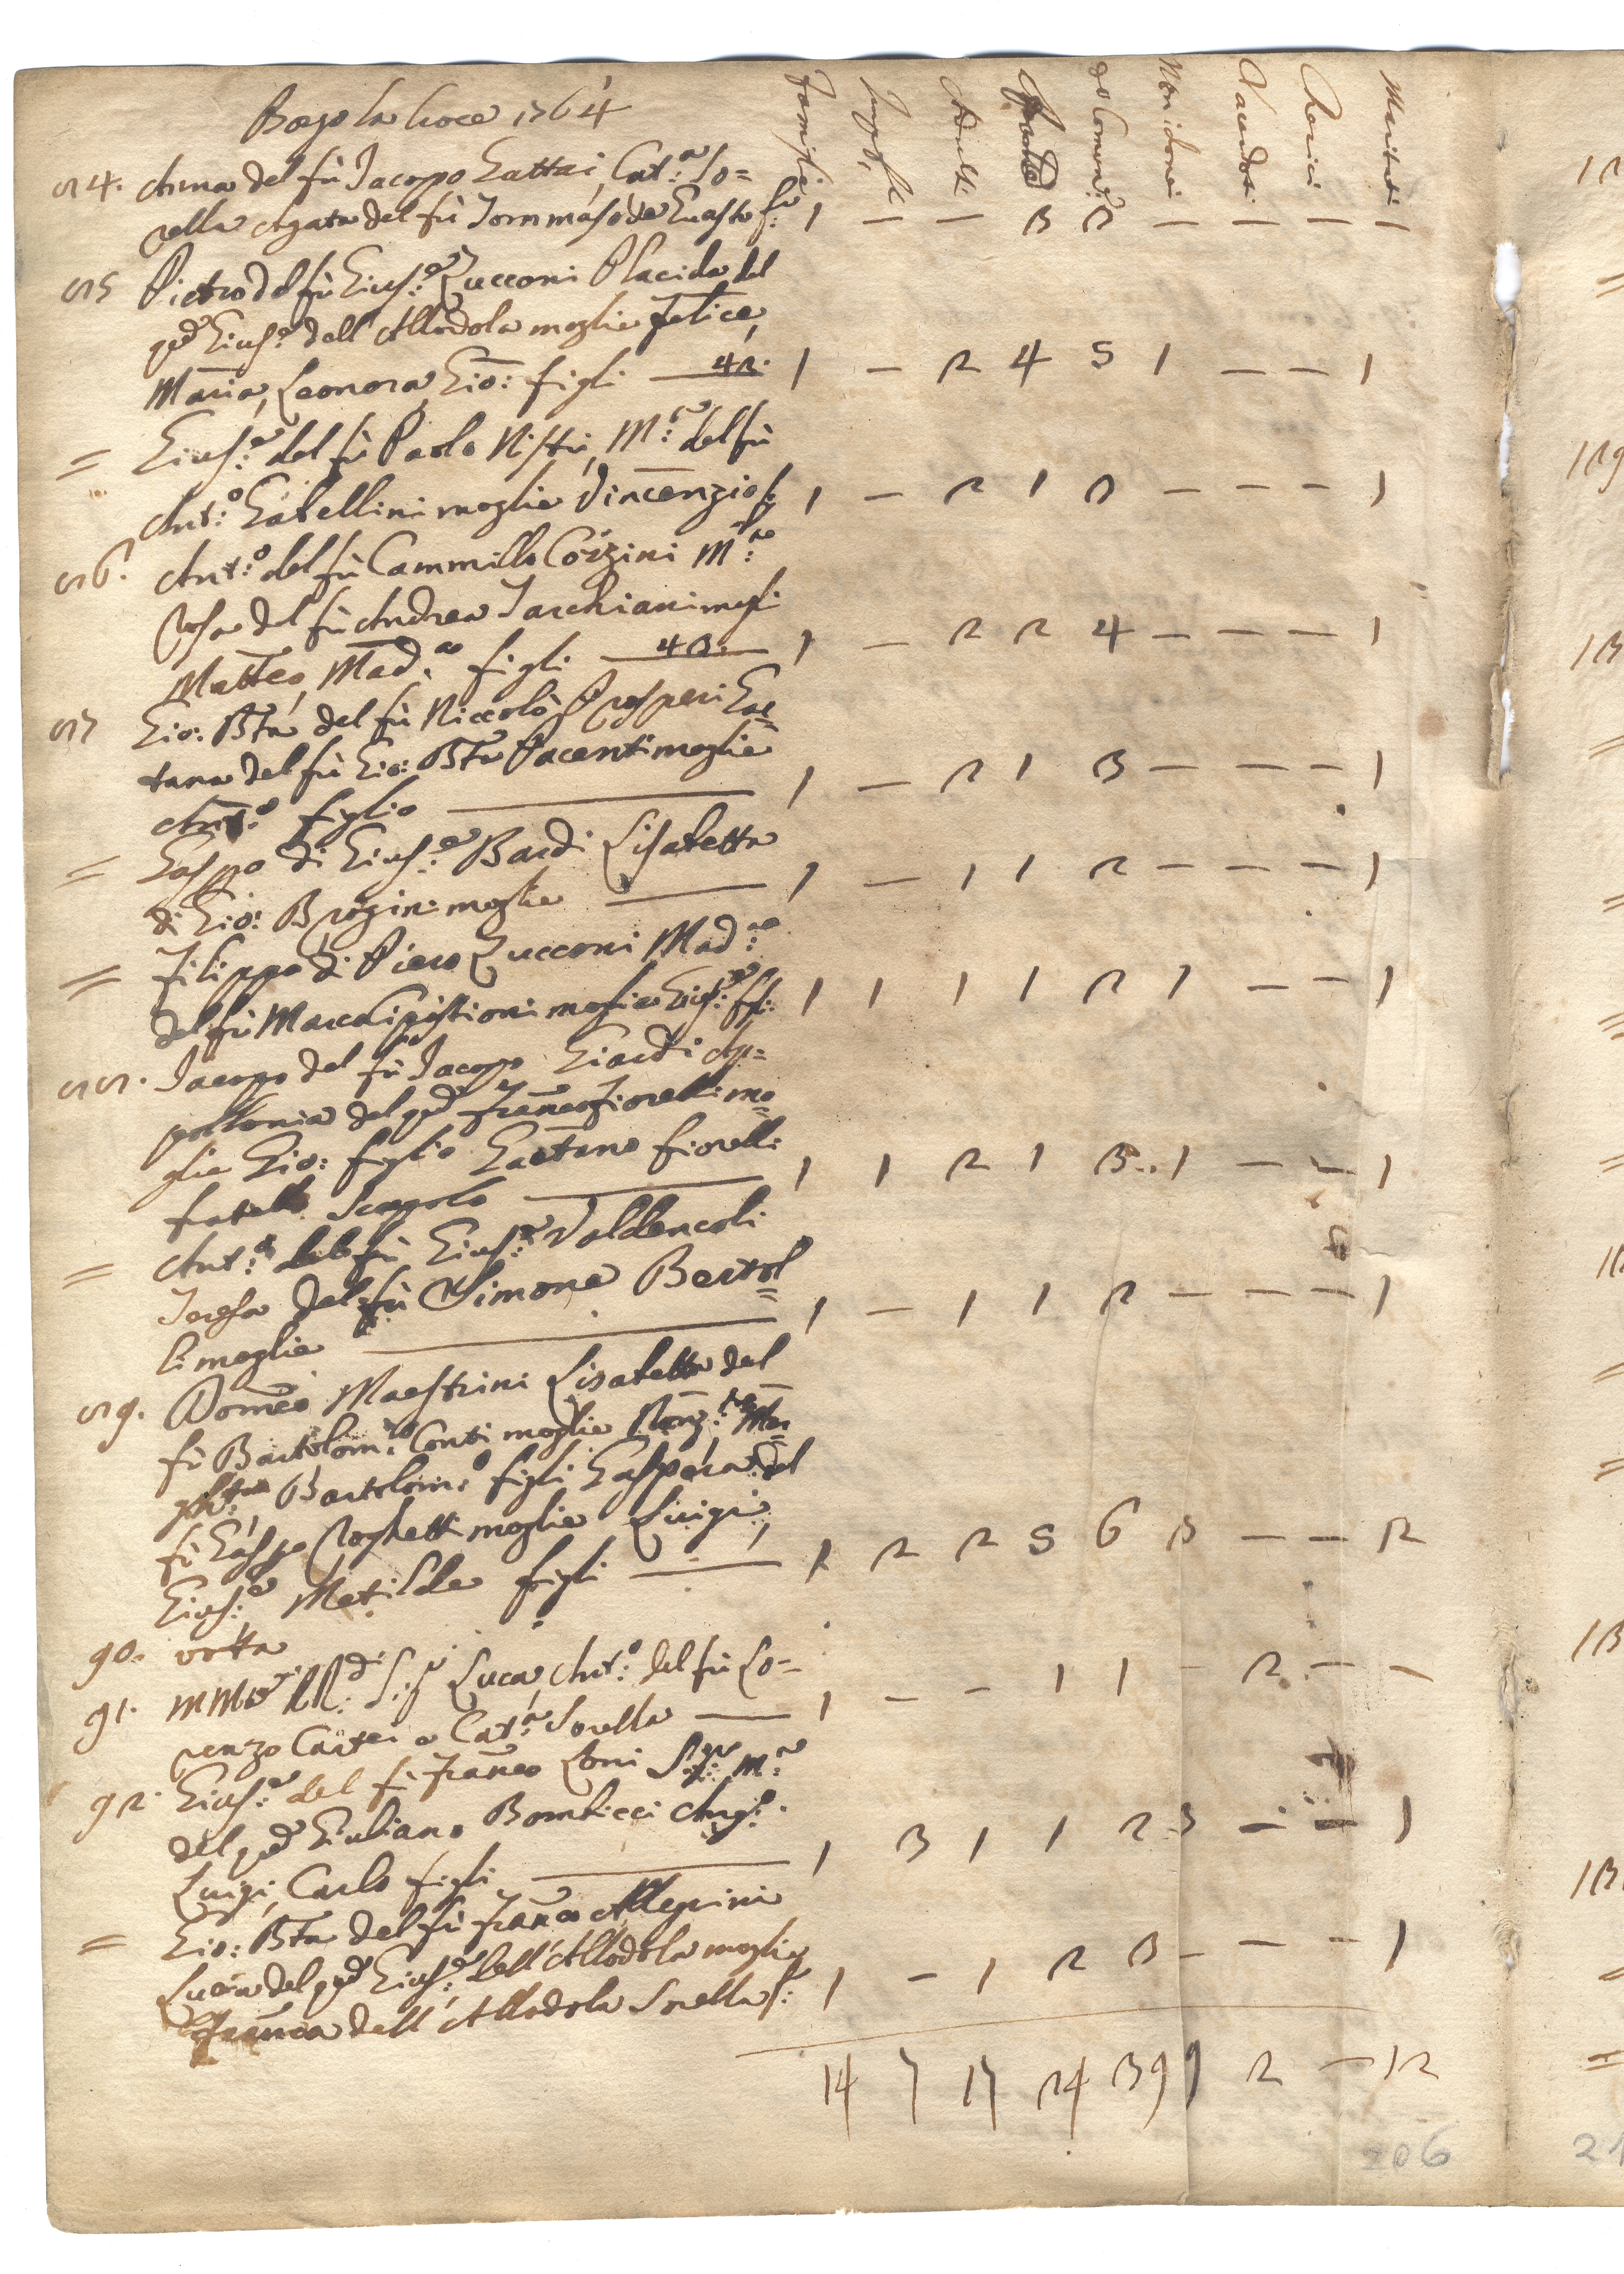 Borgo la Croce 1764
Famiglie Impos. Adulti Comun.ti Non idonei Sacerdoti Cherici Maritati
84. Anna del fù Jacopo Gattai, Cat:a So=
rella Agata del fù Tommaso da Guasto 1 — — 3 3 — — — —
85 Pietro del fù Gius:e Zucconi Placida del
qd Gius:e dell'Allodola moglie Felice,
Maria, Leonora, Gio: figli — 42. 1 — 2 4 5 1 — — 1
= Gius:e del fù Paolo Nistri, M:a del fù
Ant:o Gatellini moglie Vincenzio f. 1 — 2 1 3 — — — 1
86. Ant:o del fù Cammillo Corzini M:a
Rosa del fù Andrea Tarchiani mogli
Matteo, Mad:a figli — 43. 1 — 2 2 4 — — — 1
87 Gio: Bta del fù Niccolò Prosperi Gae=
tana del fù Gio: Bta Pacenti moglie
Ant:o figlio — 1 — 2 1 3 — — — 1
= Gaspo di Gius:e Bardi Lisabetta
di Gio: Brogini moglie — 1 — 1 1 2 — — — 1
= Filippo di Piero Zucconi Mad:a
del fù Marco moglie Gius:e 1 1 1 1 2 1 — — 1
88. Jacopo del fù Jacopo Giardi Ap=
pollonia del qd Franco Fiorelli mo=
glie Gio: figlio Gaetano Fiorelli
fratello Scapolo — 1 1 2 1 3 1 — — 1
= Ant:o del fù Gius:e Valdencoli
Teresa del fù Simone Bertol=
li moglie — 1 — 1 1 2 — — — 1
89. Domco Maestrini Lisabetta del
fù Bartolom:o Conti moglie
Bartolom:o figli Gaspera del
fù Gaspo Roghetti moglie Luigi,
Gius:e Matilde figli — 1 2 2 5 6 3 — — 2
90. votta
91. Luca, Ant:o del fù Lo=
renzo Cartei e Cat:a Sorella — 1 — — 1 1 — 2 — —
92. Gius:e del fù Franco Loni M:a
del qd Giuliano Bombicci Ang:o
Luigi, Carlo figli — 1 3 1 1 2 3 — — 1
= Gio: Bta del fù Franco Allegrini
Lucia del qd Gius:e dell'Allodola moglie
Franca dell'Allodola Sorella f: 1 — 1 2 3 — — — 1
14 7 17 24 39 9 2 — 12
206